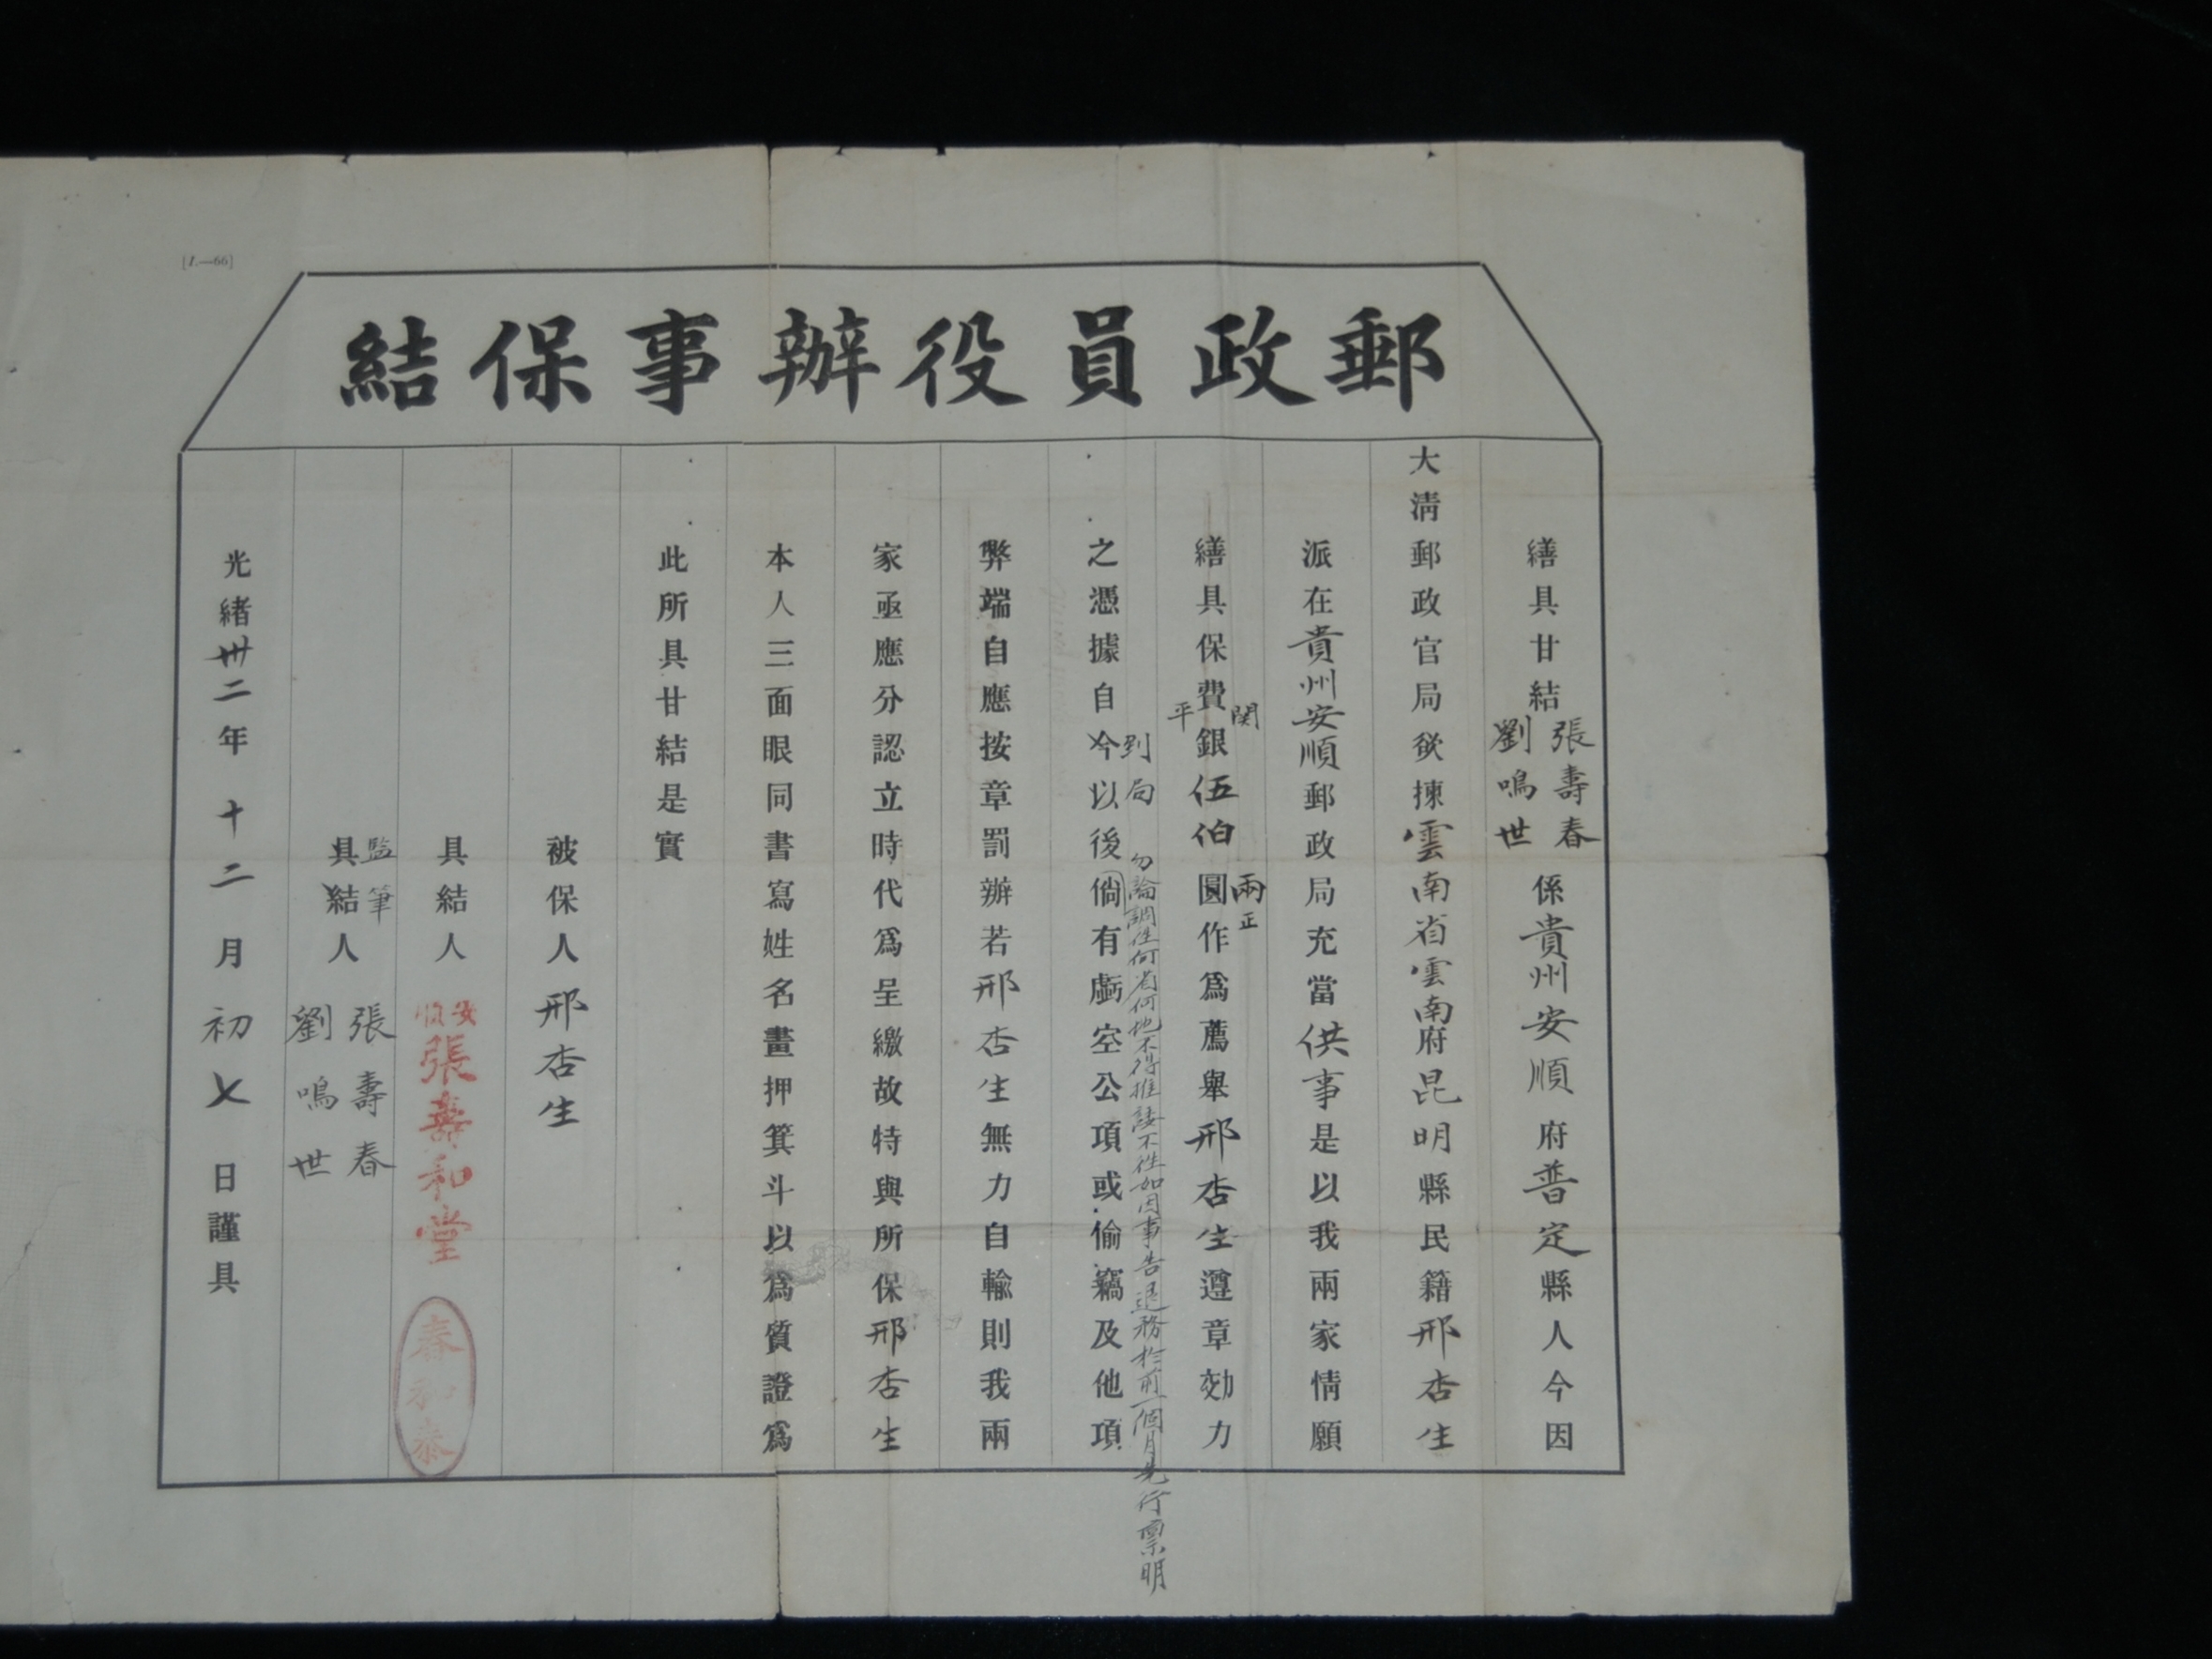 [I.—66]
郵政員役辦事保結
繕具甘結張壽春劉鳴世係貴州安順府普定縣人今因
大清郵政官局欲揀雲南省雲南府昆明縣民籍邢杏生
派在貴州安順郵政局充當供事是以我兩家情願
繕具保費銀関平伍伯圓兩正作爲薦舉邢杏生遵章効力
到局
勿論調往何省何地不得推諉不往如因事告退務於前一個月先行禀明
之憑據自今以後倘有虧空公項或偷竊及他項
弊端自應按章罰辦若邢杏生無力自輸則我兩
家亟應分認立時代爲呈繳故特與所保邢杏生
本人三面眼同書寫姓名畫押箕斗以爲質證爲
此所具甘結是實
被保人邢杏生
具結人安順張壽和堂
春和泰
監筆
具結人張壽春劉鳴世
光緒卅二年十二月初七日謹具